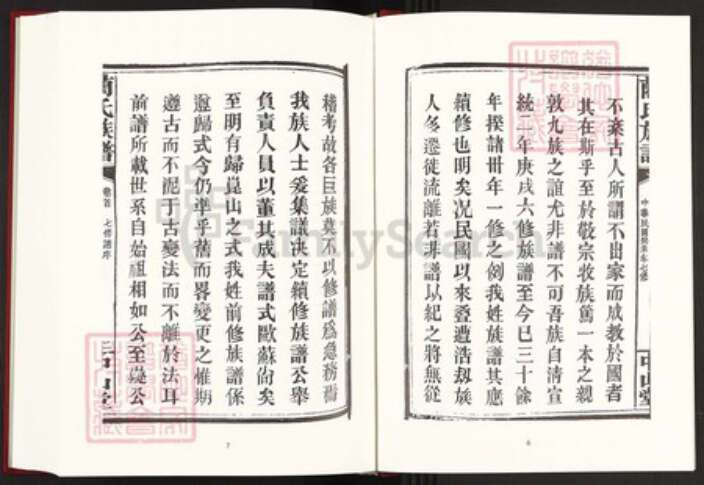 不棄古人所謂不出家而成教於國者
其在斯乎至於敬宗收族篤一本之親
敦九族之誼尤非譜不可吾族自清宣
統二年庚戌六修族譜至今已三十餘
年揆諸卅年一修之例我姓族譜其應
續修也明矣况民國以來叠遭浩刼族
人多遷徙流離若非譜以紀之將無從
中山堂
6
稽考故各巨族莫不以修譜爲急務
我族人士爰集議决定續修族譜公舉
負責人員以董其成夫譜式歐蘇尙矣
至明有歸崑山之式我姓前修族譜係
遵歸式今仍準乎舊而畧變更之惟期
遵古而不泥于古變法而不離於法耳
前譜所載世系自始祖相如公至㷱公
藺氏族譜
卷首
七修譜序
中山堂
7
FamilySearch